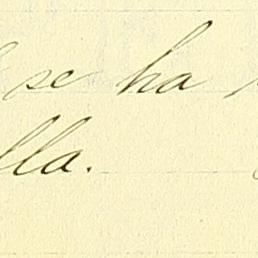 se ha
lla.